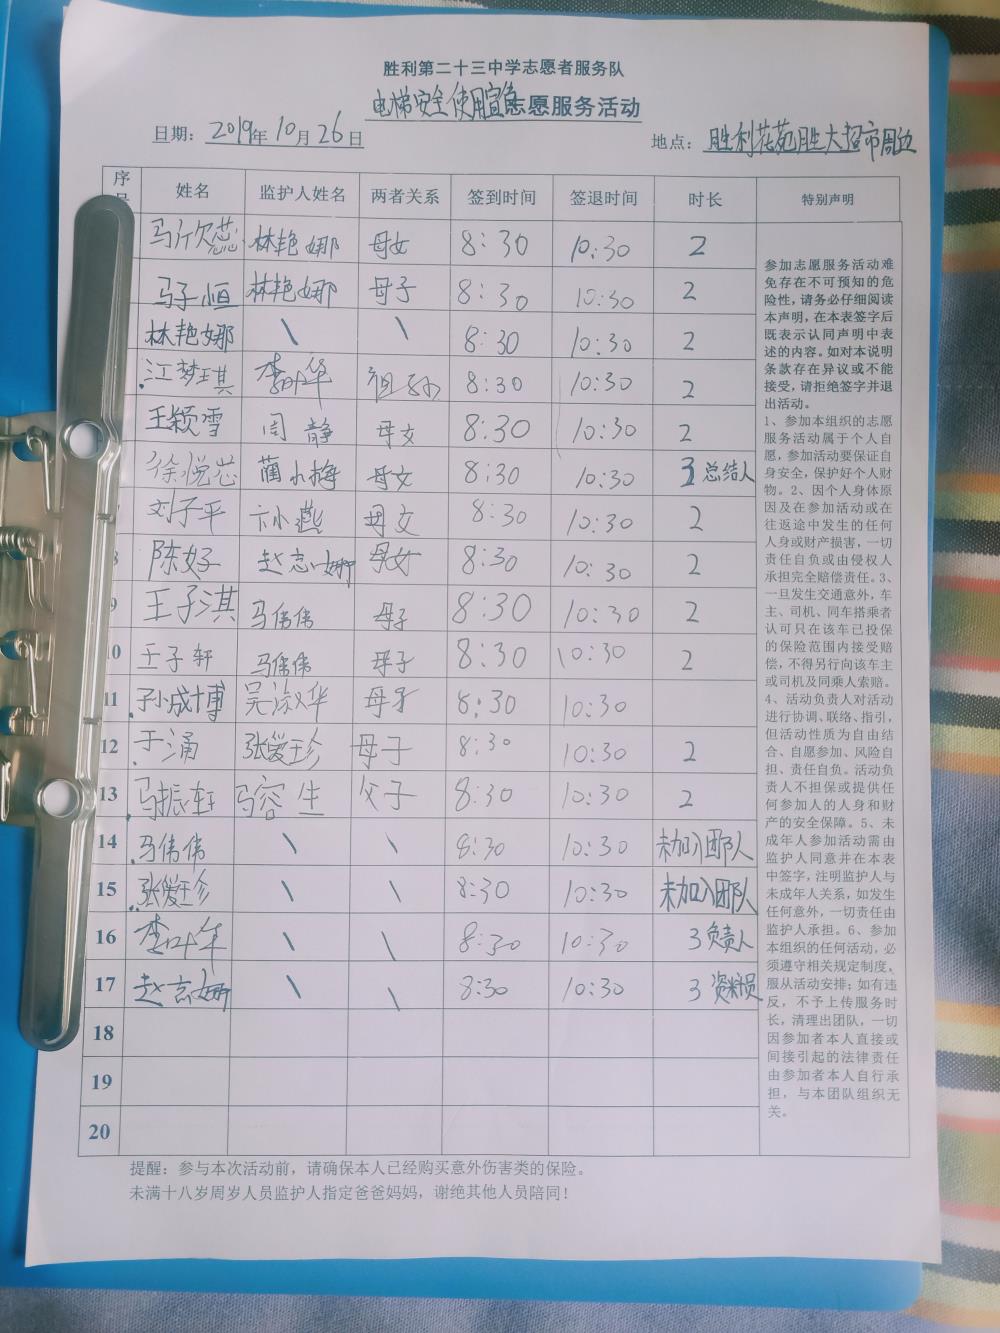 胜利第二十三中学志愿者服务队
电梯安全使用宣传志愿服务活动
日期：2019年10月26日 地点：胜利花苑胜大超市周边
序 姓名 监护人姓名 两者关系 签到时间 签退时间 时长 特别声明
马欣蕊 林艳娜 母女 8:30 10:30 2
马子恒 林艳娜 母子 8:30 10:30 2
林艳娜 \ \ 8:30 10:30 2
江梦琪 李叶华 祖孙 8:30 10:30 2
王颖雪 闫静 母女 8:30 10:30 2
徐悦芯 蔺小梅 母女 8:30 10:30 3 总结人
刘子平 卞小燕 母女 8:30 10:30 2
陈好 赵志娜 母女 8:30 10:30 2
9 王子淇 马伟伟 母子 8:30 10:30 2
10 王子轩 马伟伟 母子 8:30 10:30 2
11 孙成博 吴淑华 母子 8:30 10:30
12 于涌 张爱珍 母子 8:30 10:30 2
13 马振轩 马容生 父子 8:30 10:30 2
14 马伟伟 \ \ 8:30 10:30 未加入团队
15 张爱珍 \ \ 8:30 10:30 未加入团队
16 李叶华 \ \ 8:30 10:30 3 负责人
17 赵志娜 \ \ 8:30 10:30 3 资料员
18
19
20
参加志愿服务活动难
免存在不可预知的危
险性，请务必仔细阅读
本声明，在本表签字后
既表示认同声明中表
述的内容。如对本说明
条款存在异议或不能
接受，请拒绝签字并退
出活动。
1、参加本组织的志愿
服务活动属于个人自
愿，参加活动要保证自
身安全，保护好个人财
物。2、因个人身体原
因及在参加活动或在
往返途中发生的任何
人身或财产损害，一切
责任自负或由侵权人
承担完全赔偿责任。3、
一旦发生交通意外，车
主、司机、同车搭乘者
认可只在该车已投保
的保险范围内接受赔
偿，不得另行向该车主
或司机及同乘人索赔。
4、活动负责人对活动
进行协调、联络、指引，
但活动性质为自由结
合、自愿参加、风险自
担、责任自负。活动负
责人不担保或提供任
何参加人的人身和财
产的安全保障。5、未
成年人参加活动需由
监护人同意并在本表
中签字，注明监护人与
未成年人关系，如发生
任何意外，一切责任由
监护人承担。6、参加
本组织的任何活动，必
须遵守相关规定制度，
服从活动安排；如有违
反，不予上传服务时
长，清理出团队，一切
因参加者本人直接或
间接引起的法律责任
由参加者本人自行承
担，与本团队组织无
关。
提醒：参与本次活动前，请确保本人已经购买意外伤害类的保险。
未满十八岁周岁人员监护人指定爸爸妈妈，谢绝其他人员陪同！